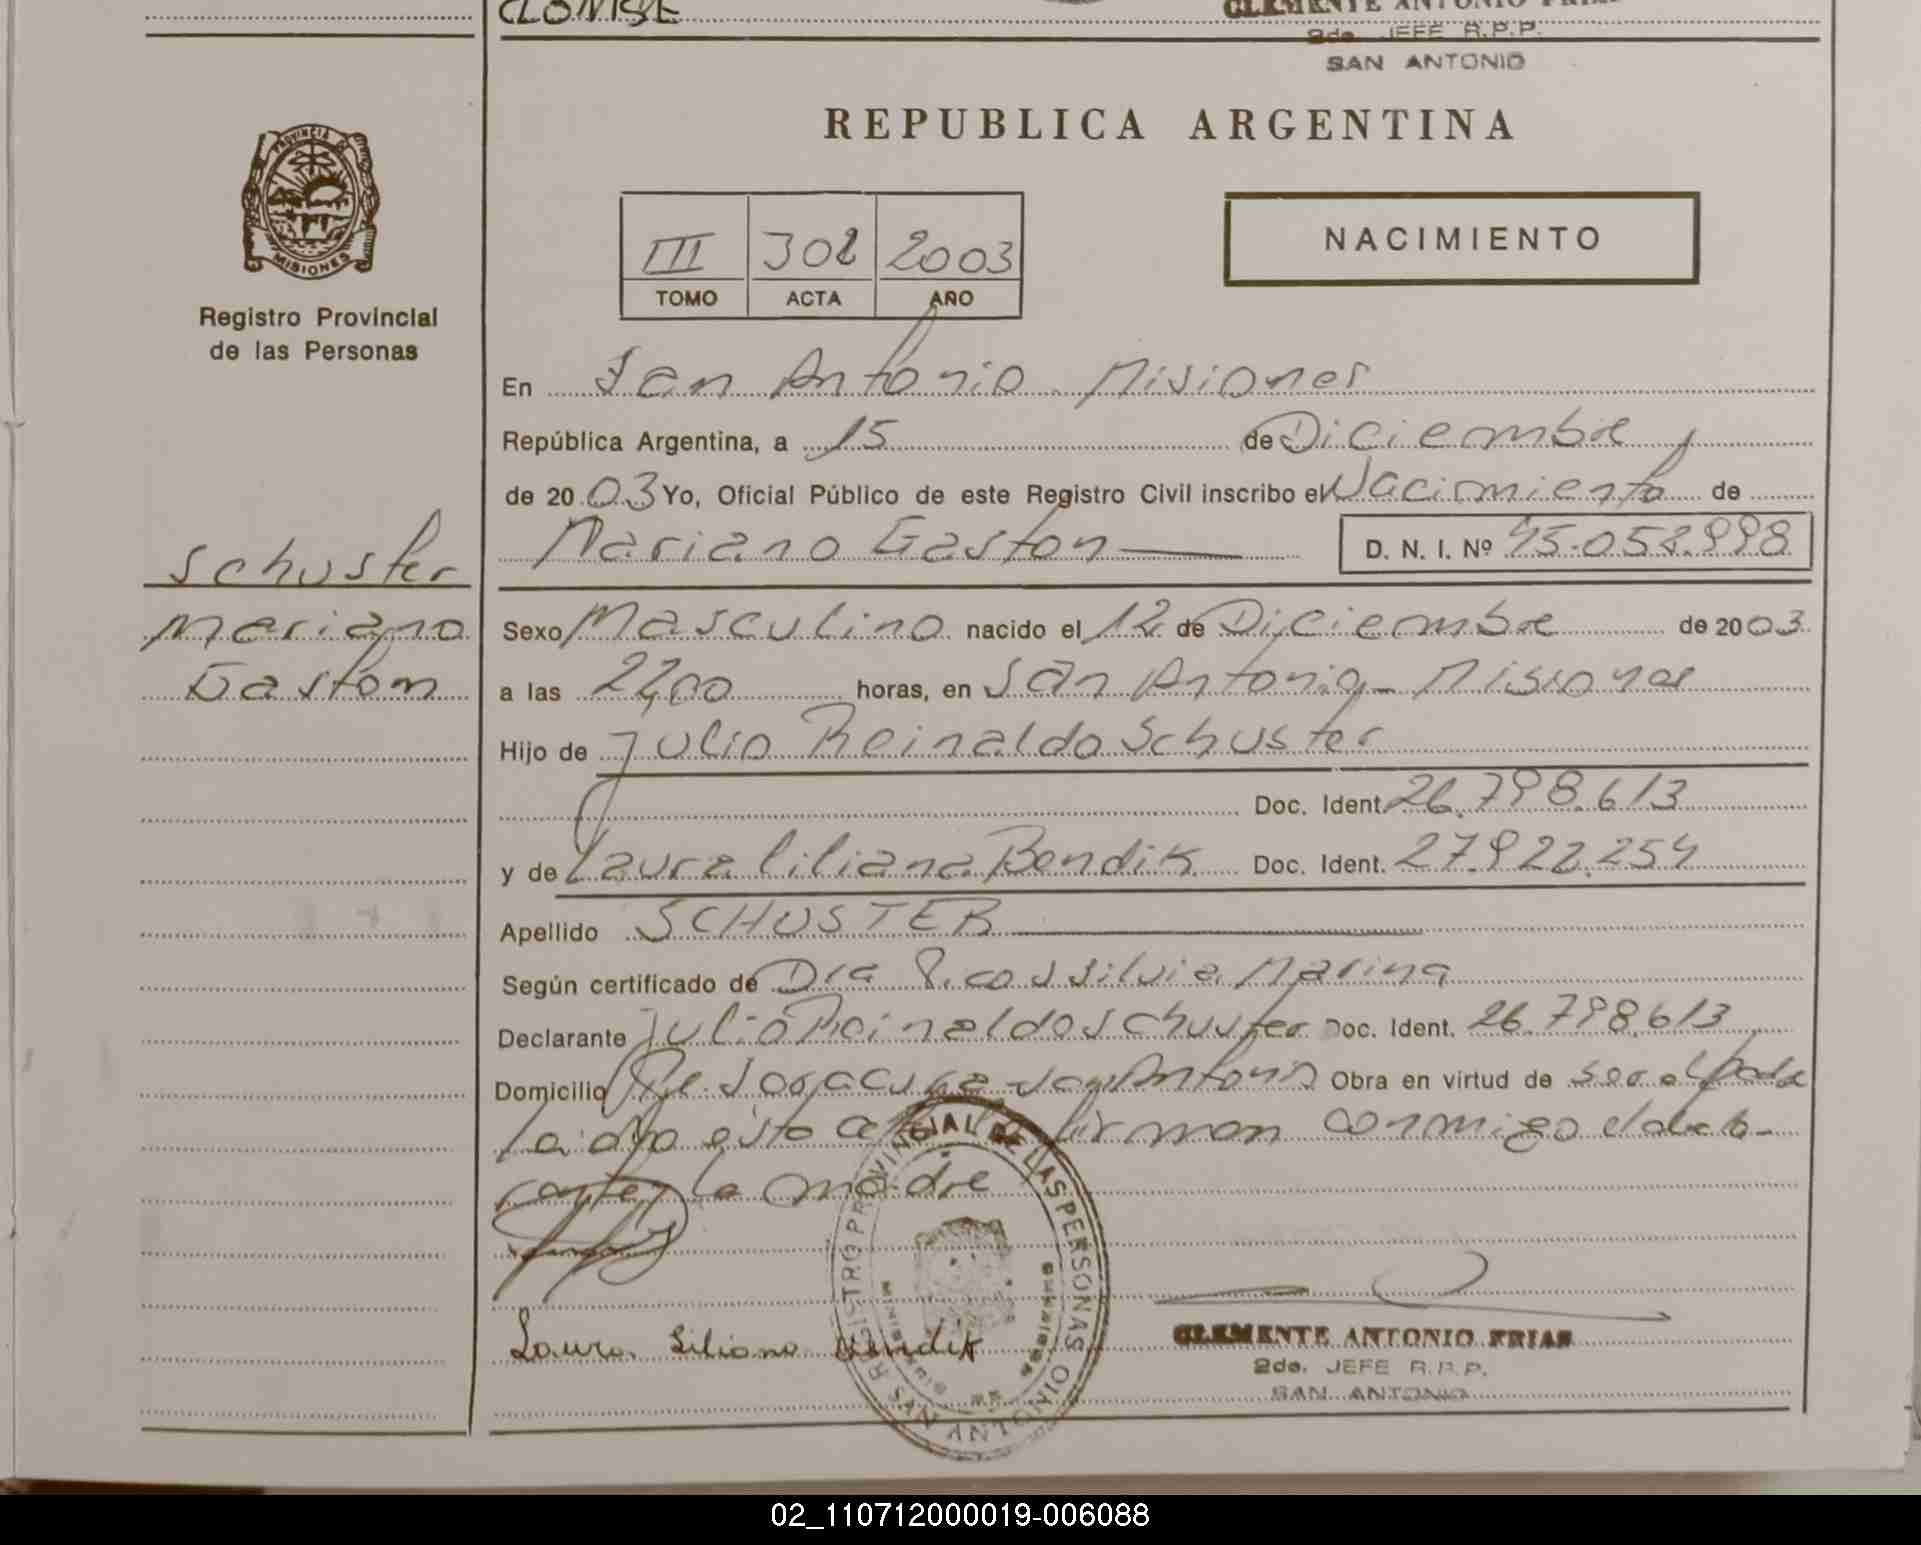 CLONISE
CLEMENTE ANTONIO FRIAS
2do. JEFE R.P.P.
SAN ANTONIO
PROVINCIA DE
MISIONES
Registro Provincial
de las Personas
Schuster
Mariano
Gaston
REPUBLICA ARGENTINA
III 302 2003
TOMO ACTA AÑO
NACIMIENTO
En San Antonio Misiones
República Argentina, a 15 de Diciembre
de 2003 Yo, Oficial Público de este Registro Civil inscribo el Nacimiento de
Mariano Gaston D. N. I. Nº 45.052.998
Sexo Masculino nacido el 12 de Diciembre de 2003
a las 22,00 horas, en San Antonio - Misiones
Hijo de Julio Reinaldo Schuster
Doc. Ident. 26.798.613
y de Laura Liliana Bendik Doc. Ident. 27.922.254
Apellido SCHUSTER
Según certificado de Dra Silvia Marina
Declarante Julio Reinaldo Schuster Doc. Ident. 26.798.613
Domicilio San Antonio Obra en virtud de ser el padre
firman conmigo el decla-
rante y la madre
Laura Liliana Bendik
REGISTRO PROVINCIAL DE LAS PERSONAS
SAN ANTONIO
MISIONES
CLEMENTE ANTONIO FRIAS
2do. JEFE R.P.P.
SAN ANTONIO
02_110712000019-006088